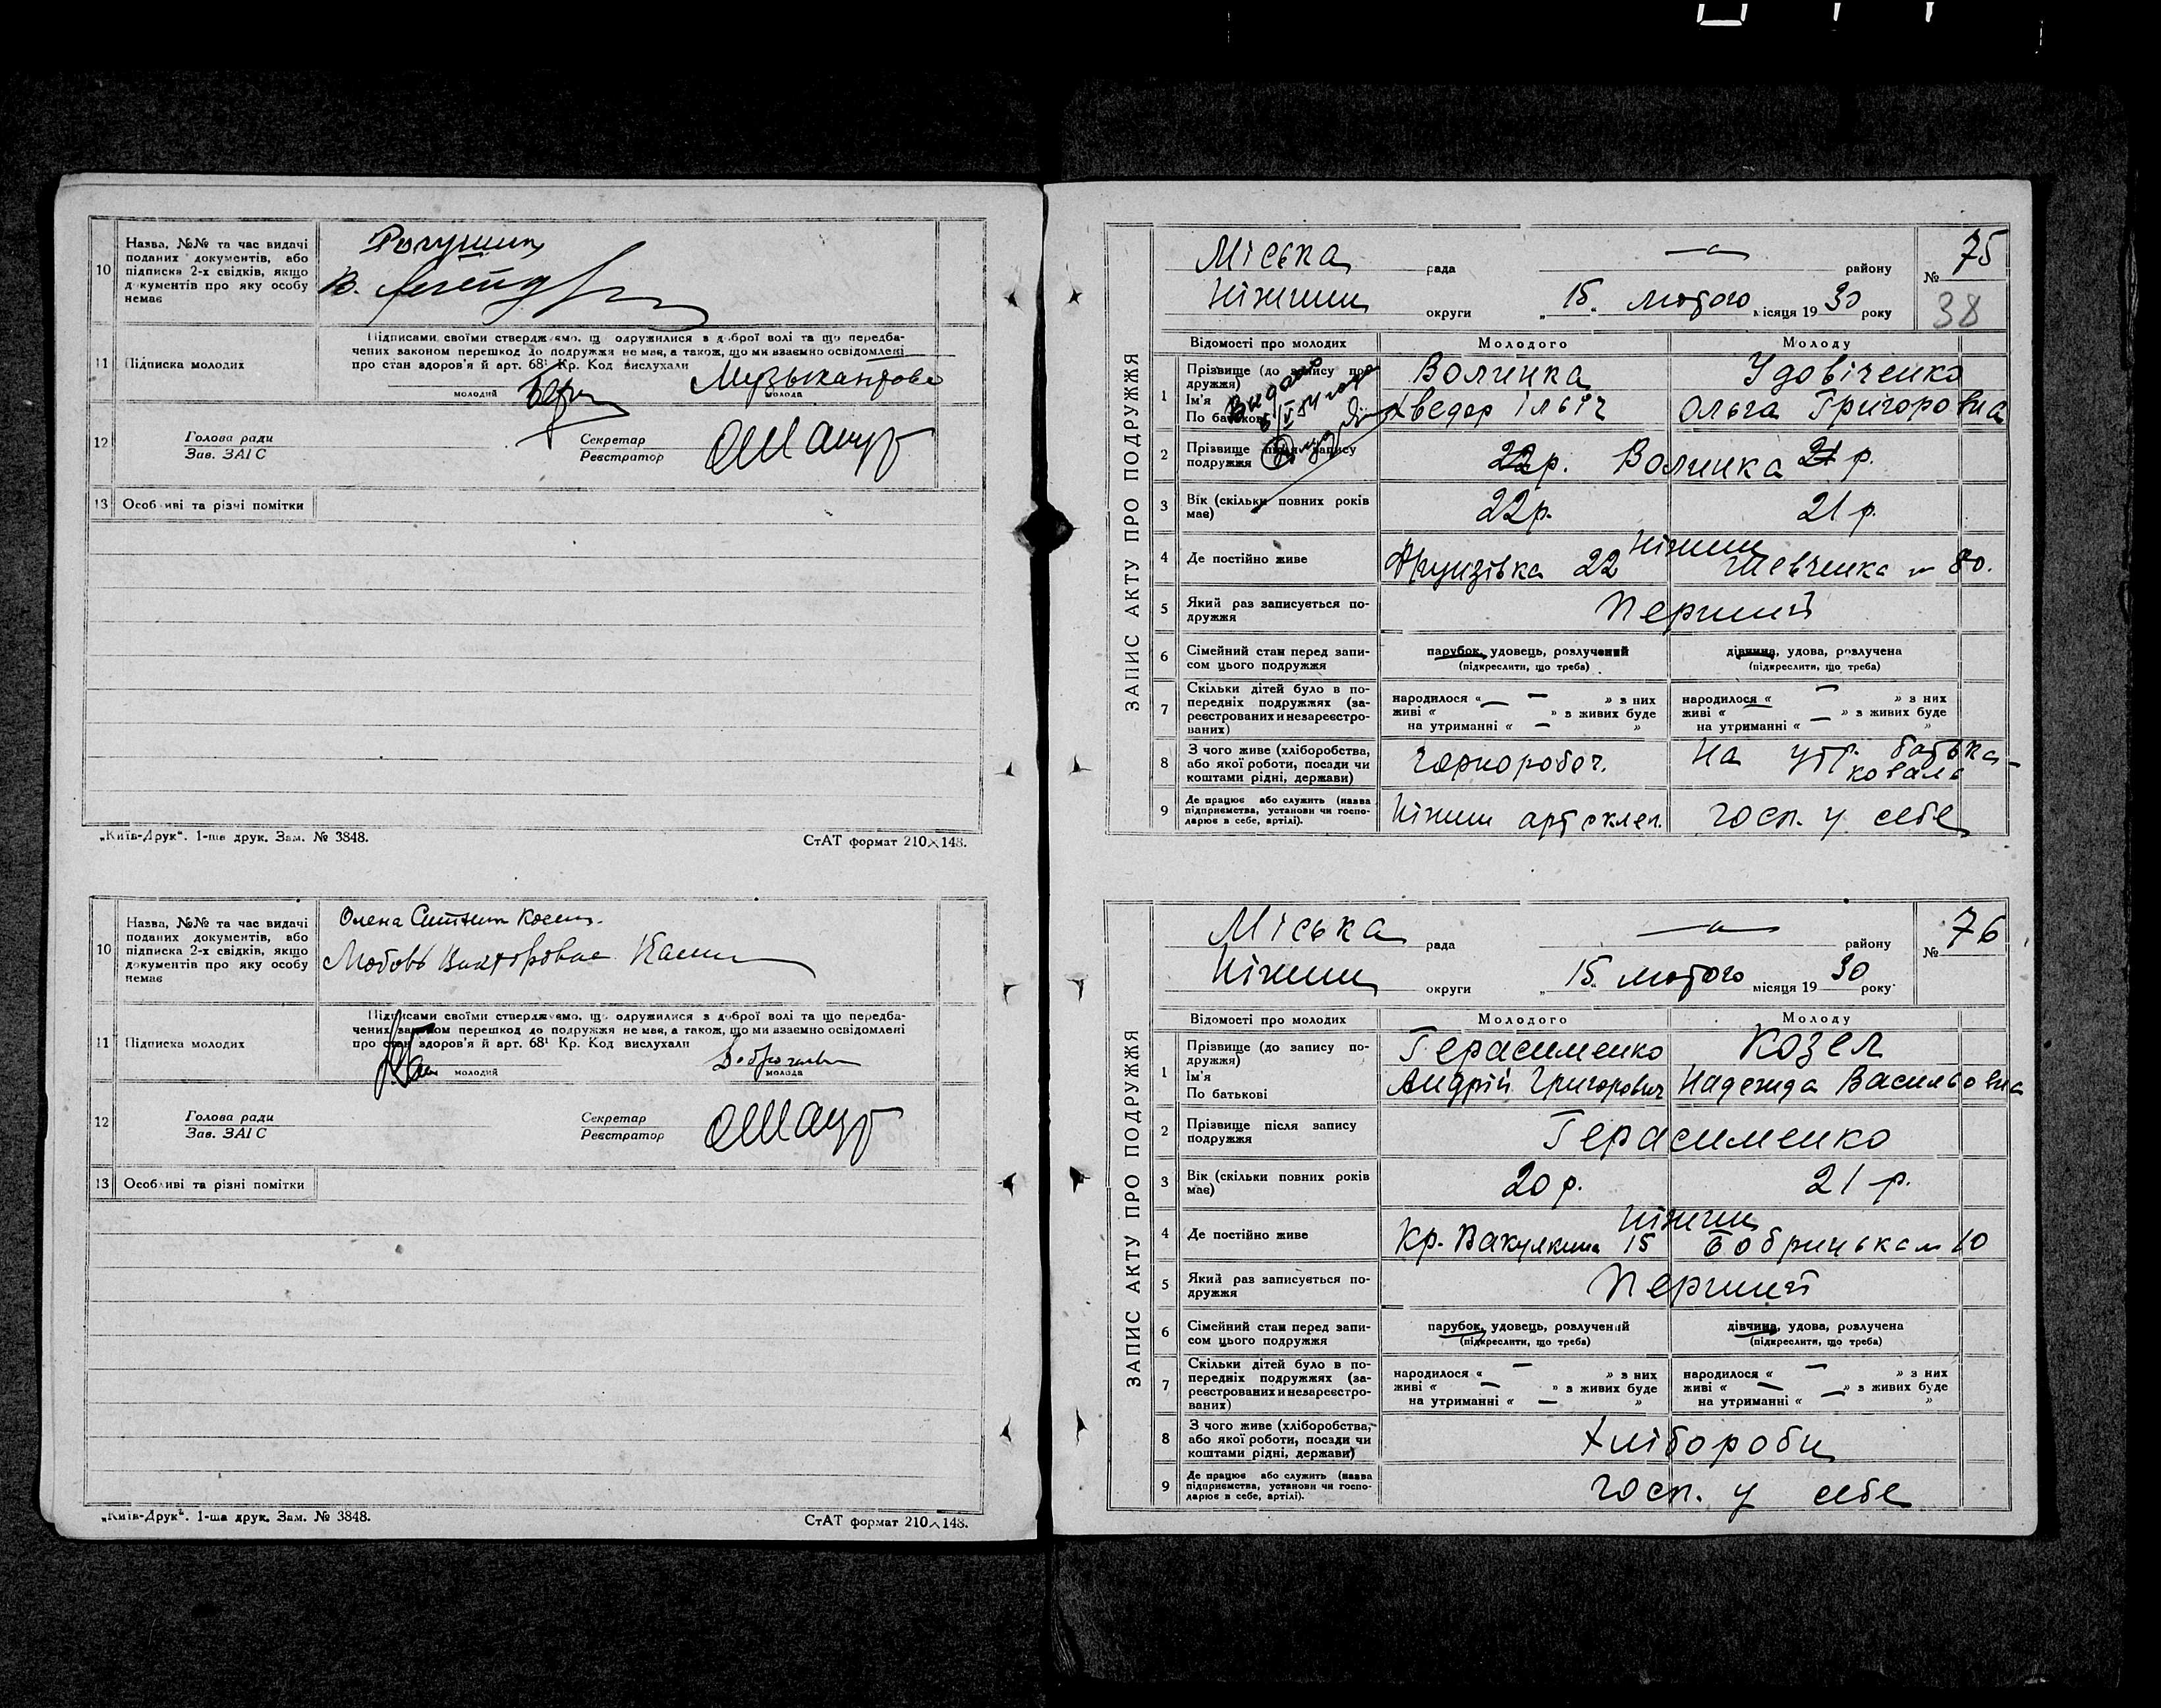 10
Назва, №№ та час видачі
поданих документів, або
підписка 2-х свідків, якщо
документів про яку особу
немає
В.
11
Підписка молодих
Підписами своїми стверджуємо, що одружилися з доброї волі та що передба-
чених законом перешкод до подружжя не має, а також, що ми взаємно освідомлені
про стан здоров'я й арт. 68¹ Кр. Код вислухали
Музыкантова
молодий
молода
12
Голова ради
Зав. ЗАГС
Секретар
Реєстратор
13
Особливі та різні помітки
„Київ-Друк". 1-ша друк. Зам. № 3848.
СтАТ формат 210×148.
10
Назва, №№ та час видачі
поданих документів, або
підписка 2-х свідків, якщо
документів про яку особу
немає
Олена
Любовь Викторовна
11
Підписка молодих
Підписами своїми стверджуємо, що одружилися з доброї волі та що передба-
чених законом перешкод до подружжя не має, а також, що ми взаємно освідомлені
про стан здоров'я й арт. 68¹ Кр. Код вислухали
молодий
молода
12
Голова ради
Зав. ЗАГС
Секретар
Реєстратор
13
Особливі та різні помітки
„Київ-Друк". 1-ша друк. Зам. № 3848.
СтАТ формат 210×148.
ЗАПИС АКТУ ПРО ПОДРУЖЖЯ
Міська рада — району № 75
Ніжин округи „ 15 „ лютого місяця 19 30 року
38
Відомості про молодих Молодого Молоду
1
Прізвище (до запису по-
дружжя)
Волинка Удовіченко
Ім'я
По батькові
Хведор Ільіч Ольга Григоровна
Видано
2
Прізвище після запису
подружжя
22р. Волинка 21 р.
3
Вік (скільки повних років
має)
22р. 21 р.
4
Де постійно живе
Ніжин
22 Шевченка 80.
5
Який раз записується по-
дружжя
Перший
6
Сімейний стан перед запи-
сом цього подружжя
парубок, удовець, розлучений
(підкреслити, що треба)
дівчина, удова, розлучена
(підкреслити, що треба)
7
Скільки дітей було в по-
передніх подружжях (за-
реєстрованих и незареєстро-
ваних)
народилося « — » з них
живі « — » з живих буде
на утриманні « — »
народилося « — » з них
живі « — » з живих буде
на утриманні « — »
8
З чого живе (хліборобства,
або якої роботи, посади чи
коштами рідні, держави)
Чорнороборч.
На утр. батька-
коваля
9
Де працює або служить (назва
підприємства, установи чи госпо-
дарює в себе, артілі).
Ніжин госп. у себе
ЗАПИС АКТУ ПРО ПОДРУЖЖЯ
Міська рада — району № 76
Ніжин округи „ 15 „ лютого місяця 19 30 року
Відомості про молодих Молодого Молоду
1
Прізвище (до запису по-
дружжя)
Герасименко Козел
Ім'я
По батькові
Андрій Григорович Надежда Васильовна
2
Прізвище після запису
подружжя
Герасименко
3
Вік (скільки повних років
має)
20 р. 21 р.
4
Де постійно живе
Ніжин
Кр. 15 10
5
Який раз записується по-
дружжя
Перший
6
Сімейний стан перед запи-
сом цього подружжя
парубок, удовець, розлучений
(підкреслити, що треба)
дівчина, удова, розлучена
(підкреслити, що треба)
7
Скільки дітей було в по-
передніх подружжях (за-
реєстрованих и незареєстро-
ваних)
народилося « — » з них
живі « — » з живих буде
на утриманні « — »
народилося « — » з них
живі « — » з живих буде
на утриманні « — »
8
З чого живе (хліборобства,
або якої роботи, посади чи
коштами рідні, держави)
Хлібороби
9
Де працює або служить (назва
підприємства, установи чи госпо-
дарює в себе, артілі).
госп. у себе